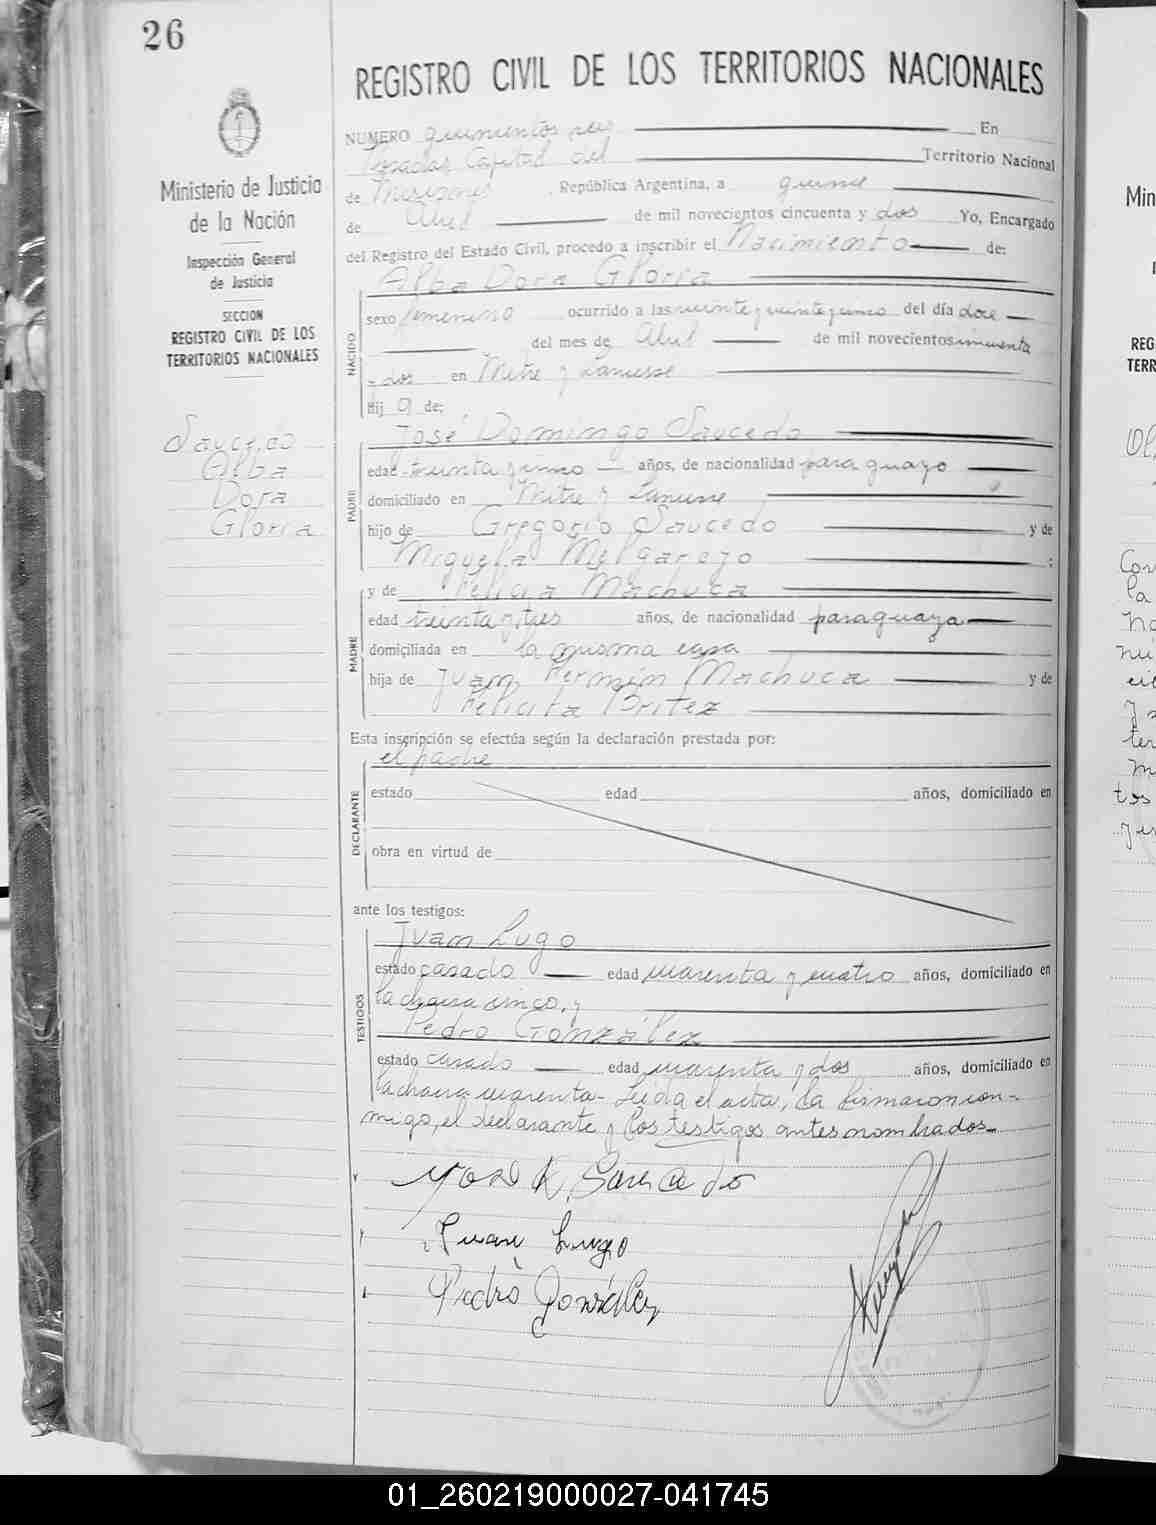 26
REGISTRO CIVIL DE LOS TERRITORIOS NACIONALES
Ministerio de Justicia
de la Nación
Inspección General
de Justicia
SECCION
REGISTRO CIVIL DE LOS
TERRITORIOS NACIONALES
Saucedo
Alba
Dora
Gloria
NUMERO quinientos seis En
Posadas Capital del Territorio Nacional
de Misiones República Argentina, a quince
de Abril de mil novecientos cincuenta y dos Yo, Encargado
del Registro del Estado Civil, procedo a inscribir el Nacimiento de:
Alba Dora Gloria
NACIDO
sexo femenino ocurrido a las veinte y veinte y cinco del día doce
del mes de Abril de mil novecientos cincuenta
dos en Mitre y Lanusse
Hij a de:
José Domingo Saucedo
PADRE
edad treinta y cinco años, de nacionalidad paraguayo
domiciliado en Mitre y Lanusse
hijo de Gregorio Saucedo y de
Miguela Melgarejo ;
y de Felicia Machuca
MADRE
edad treinta y tres años, de nacionalidad paraguaya
domiciliada en la misma casa
hija de Juan Fermín Machuca y de
Felicita Britez
Esta inscripción se efectúa según la declaración prestada por:
el padre
DECLARANTE
estado edad años, domiciliado en
obra en virtud de
ante los testigos:
Juan Lugo
TESTIGOS
estado casado edad cuarenta y cuatro años, domiciliado en
la chacra cinco, y
Pedro González
estado casado edad cuarenta y dos años, domiciliado en
la chacra cuarenta- Leida el acta, la firmaron con-
migo, el declarante y los testigos antes nombrados.-
José D. Saucedo
Juan Lugo
Pedro González
Min
REG
TERR
01_260219000027-041745